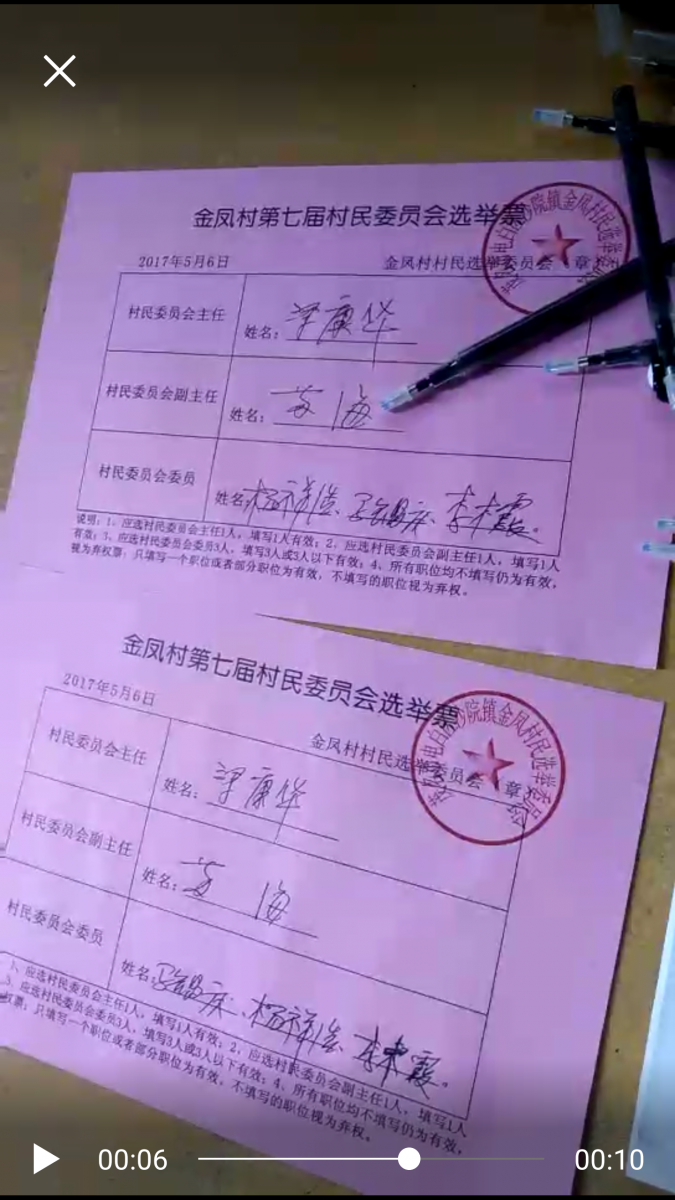 金凤村第七届村民委员会选举票
2017年5月6日
金凤村村民选举委员会（章）
村民委员会主任
姓名：梁康华
村民委员会副主任
姓名：苏海
村民委员会委员
姓名：杨祥浩、李木霞。
说明：1、应选村民委员会主任1人，填写1人有效；2、应选村民委员会副主任1人，填写1人
有效；3、应选村民委员会委员3人，填写3人或3人以下有效；4、所有职位均不填写仍为有效，
视为弃权票；只填写一个职位或者部分职位为有效，不填写的职位视为弃权。
金凤村第七届村民委员会选举票
2017年5月6日
金凤村村民选举委员会（章）
村民委员会主任
姓名：梁康华
村民委员会副主任
姓名：苏海
村民委员会委员
姓名：杨祥浩、李木霞。
1、应选村民委员会主任1人，填写1人有效；2、应选村民委员会副主任1人，填写1人
3、应选村民委员会委员3人，填写3人或3人以下有效；4、所有职位均不填写仍为有效，
权票；只填写一个职位或者部分职位为有效，不填写的职位视为弃权。
00:06
00:10